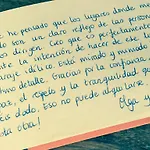 he pensado que los lugares donde
son un claro reflejo de las personas
dirigen. Creo que es perfectamente
la intención de hacer de este l
idílico. Está mirado y mimado
detalle. Gracias por la confianza,
el respeto y la tranquilidad que
dado. Eso no puede algui
otra! Olga y